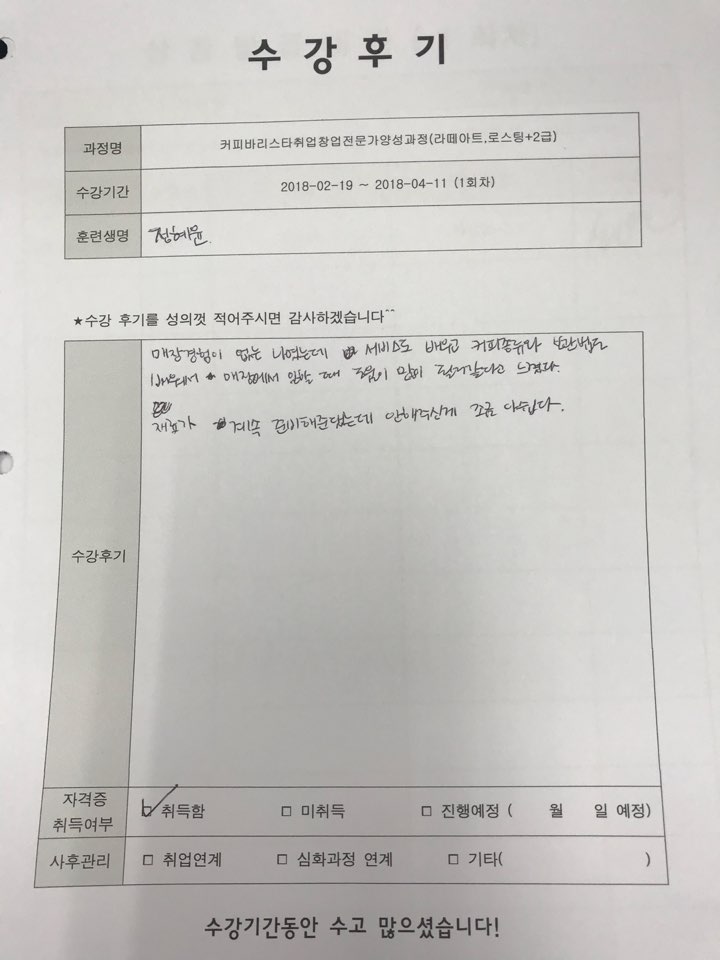 수강후기
과정명 커피바리스타취업창업전문가양성과정(라떼아트,로스팅+2급)
수강기간 2018-02-19 ~ 2018-04-11 (1회차)
훈련생명 정혜윤
★수강 후기를 성의껏 적어주시면 감사하겠습니다^^
매장경험이 없는 나였는데 서비스도 배우고 커피종류와 보관법도
배워서 매장에서 일할 때 도움이 많이 될거같다고 느꼈다.
재료가 계속 준비해준댔는데 안해주신게 조금 아쉽다.
수강후기
자격증
취득여부 ☑ 취득함 □ 미취득 □ 진행예정 ( 월 일 예정)
사후관리 □ 취업연계 □ 심화과정 연계 □ 기타( )
수강기간동안 수고 많으셨습니다!